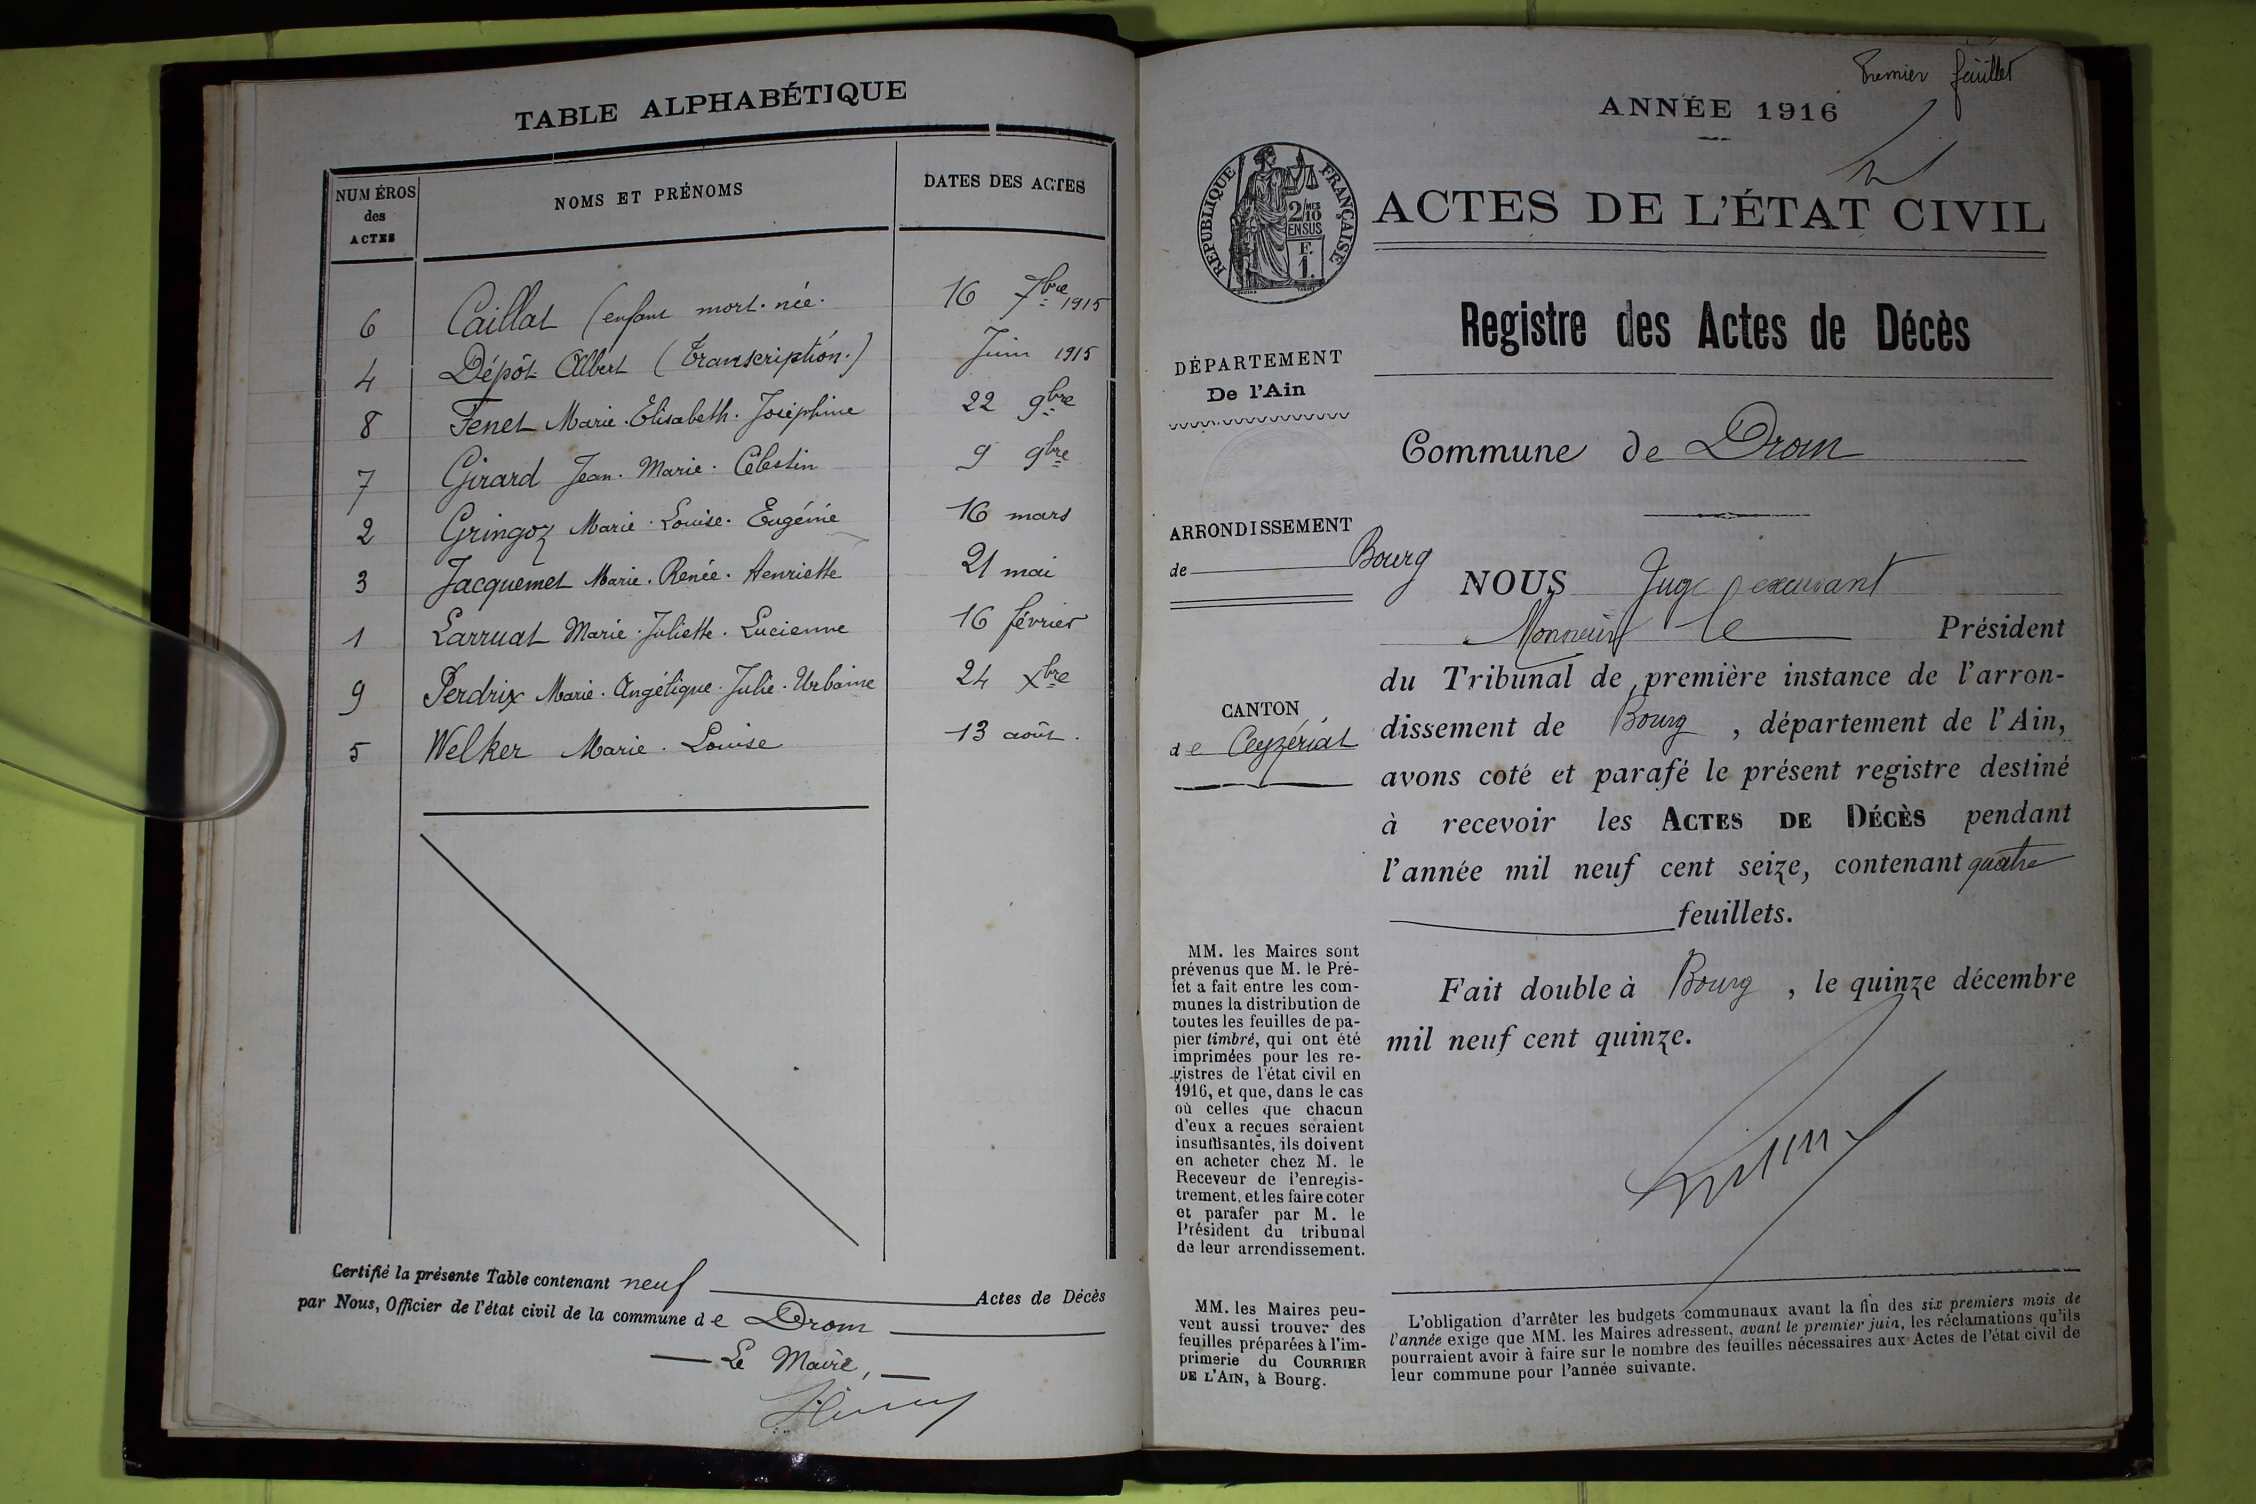 TABLE ALPHABÉTIQUE
NUMÉROS
des
ACTES
NOMS ET PRÉNOMS
DATES DES ACTES
6 Caillat (enfant mort-née. 16 7bre 1915
4 Dépôt Albert (Transcription.) Juin 1915
8 Fenet Marie. Elisabeth. Joséphine 22 9bre
7 Girard Jean. Marie. Célestin 9 9bre
2 Gringoz Marie. Louise. Eugénie 16 mars
3 Jacquemet Marie. Renée. Henriette 21 mai
1 Larruat Marie. Juliette. Lucienne 16 février
9 Perdrix Marie. Angélique. Julie. Urbaine 24 Xbre
5 Welker Marie. Louise 13 août.
Certifié la présente Table contenant neuf Actes de Décès
par Nous, Officier de l'état civil de la commune de Drom
Le Maire,
Premier feuillet
ANNÉE 1916
RÉPUBLIQUE FRANÇAISE
2/MES
10
EN SUS
F.
1.
ACTES DE L'ÉTAT CIVIL
Registre des Actes de Décès
DÉPARTEMENT
De l'Ain
Commune de Drom
ARRONDISSEMENT
de Bourg
CANTON
de Ceyzériat
NOUS Juge excusant
Monsieur le Président
du Tribunal de première instance de l'arron-
dissement de Bourg, département de l'Ain,
avons coté et parafé le présent registre destiné
à recevoir les ACTES DE DÉCÈS pendant
l'année mil neuf cent seize, contenant quatre
feuillets.
Fait double à Bourg, le quinze décembre
mil neuf cent quinze.
MM. les Maires sont
prévenus que M. le Pré-
fet a fait entre les com-
munes la distribution de
toutes les feuilles de pa-
pier timbré, qui ont été
imprimées pour les re-
gistres de l'état civil en
1916, et que, dans le cas
où celles que chacun
d'eux a reçues seraient
insuffisantes, ils doivent
en acheter chez M. le
Receveur de l'enregis-
trement, et les faire coter
et parafer par M. le
Président du tribunal
de leur arrondissement.
MM. les Maires peu-
vent aussi trouver des
feuilles préparées à l'im-
primerie du COURRIER
DE L'AIN, à Bourg.
L'obligation d'arrêter les budgets communaux avant la fin des six premiers mois de
l'année exige que MM. les Maires adressent, avant le premier juin, les réclamations qu'ils
pourraient avoir à faire sur le nombre des feuilles nécessaires aux Actes de l'état civil de
leur commune pour l'année suivante.